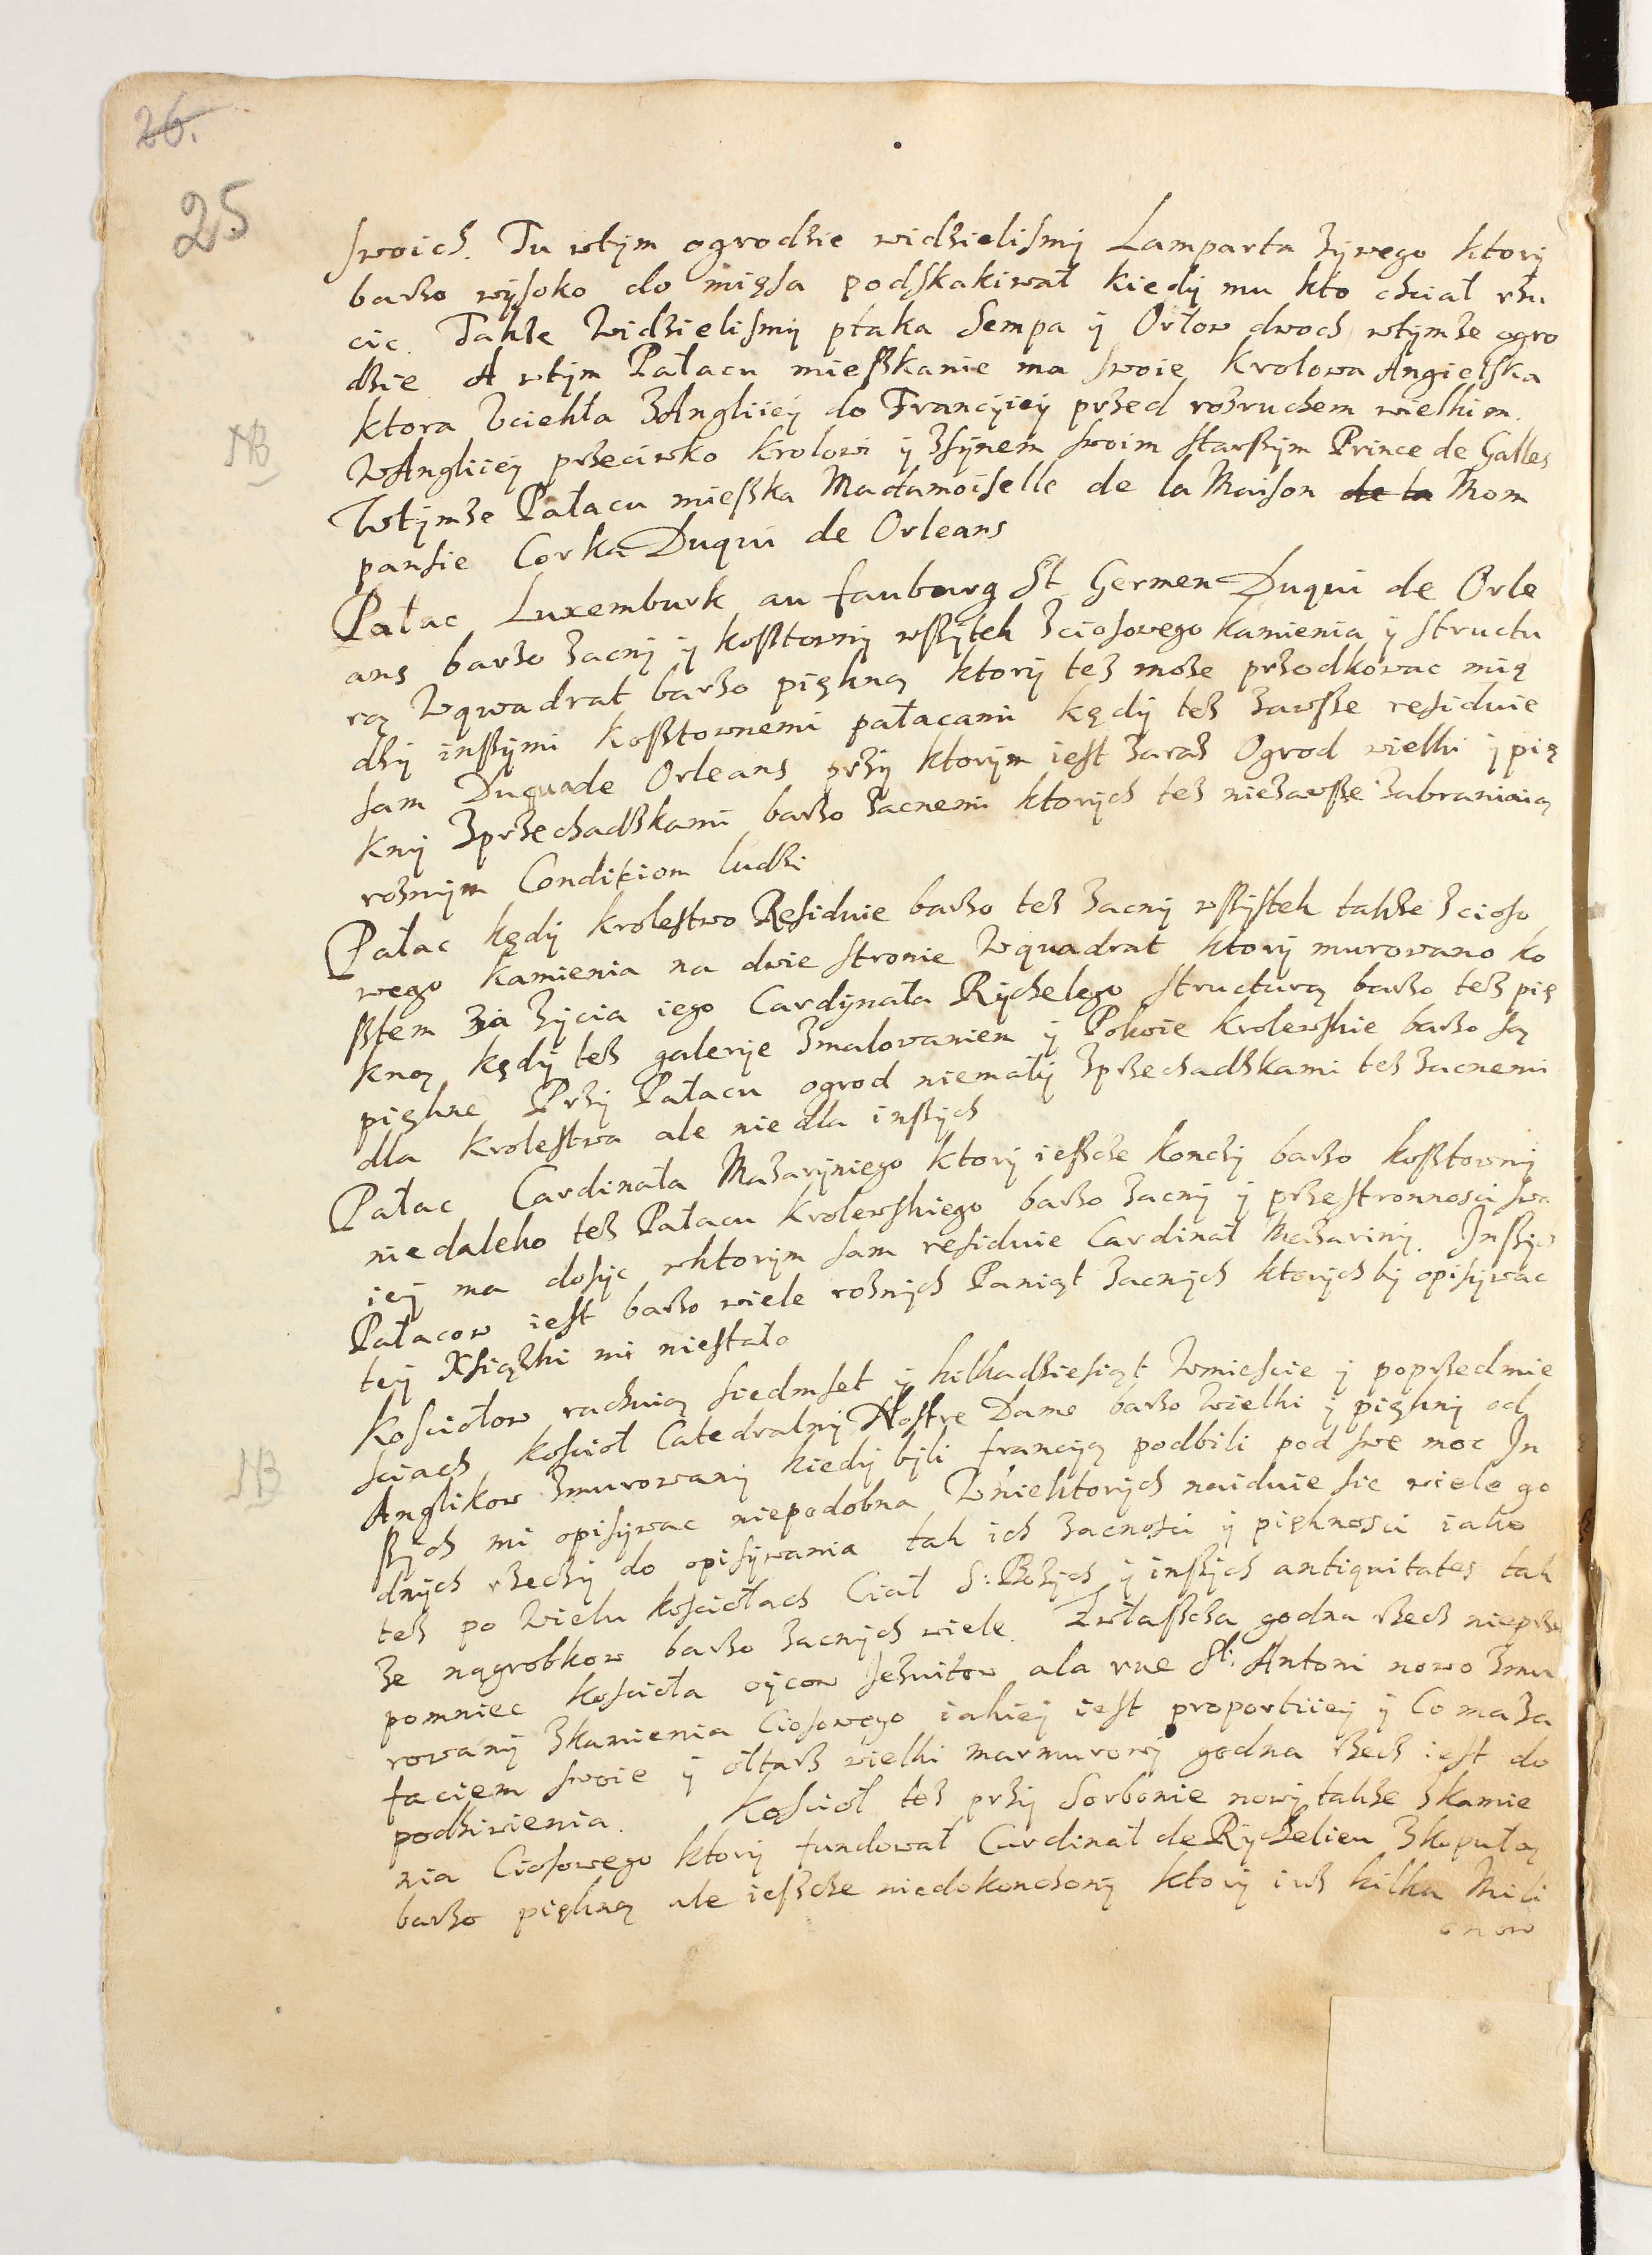 26.
25
swoich. Tu wtym ogrodzie widzielismy Lamparta zywego ktory
barzo wysoko do mięsa podskakiwał kiedy mu kto chciał rzu
cic. Takze Widzielismy ptaka Sempa y Orłow dwoch wtymze ogro
dzie A wtym Pałacu mieszkanie ma swoie Krolowa Angielska
NB
ktora Vciekła zAngliiey do Francyiey przed rozruchem wielkim.
WAngliiey przeciwko krolowi y zsynem swoim starszym Prince de Galles
Wtymze Pałacu mieszka Madamoiselle de la Maison de la Mom
pansie Corka Duqui de Orleans
Pałac Luxemburk au faubourg St Germen Duqui de Orle
ans barzo zacny y kosztowny wszytek zciosowego kamienia y structu
rą Wqwadrat barzo piękną ktory tez moze przodkowac mię
dzy inszymi kosztownemi pałacami kędy tez zawsze residuie
sam Duqua de Orleans przy ktorym iest zaraz Ogrod wielki y pię
kny zprzechadzkami barzo zacnemi ktorych tez niezawsze zabraniaią
roznym Conditiom ludzi
Pałac kędy krolestwo Residuie barzo tez zacny wszystek takze zcioso
wego kamienia na dwie stronie Wquadrat ktory murowano ko
sztem za zycia iego Cardynała Rychelego structurą barzo tez pię
kną kędy tez galerye zmalowaniem y Pokoie krolewskie barzo są
piękne Przy Pałacu ogrod niemały zprzechadzkami tez zacnemi
dla krolestwa ale nie dla inszych
Pałac Cardinała Mazaryniego ktory ieszcze konczy barzo kosztowny
niedaleko tez Pałacu krolewskiego barzo zacny y przestronnosci swo
iey ma dosyc wktorym sam residuie Cardinał Mazariny. Inszych
Pałacow iest barzo wiele roznych Paniąt zacnych ktorych by opisywac
tey Xsiązki mi niestało
Kosciołow rachuią siedmset y kilkadziesiąt Wmiescie y poprzedmie
NB
sciach kosciół Catedralny Nostre Dame barzo Wielki y piękny od
Anglikow zmurowany kiedy byli francyą podbili pod swe moc In
szych mi opisywac niepodobna Wniektorych naiduie sie wiele go
dnych rzeczy do opisywania tak ich zacnosci y pięknosci iako
tez po Wielu kosciołach Ciał S: Bozych y inszych antiquitates tak
ze nagrobkow barzo zacnych wiele. Zwłaszcza godna rzecz nieprze
pomniec kosciola oycow Jezuitow ala rue St: Antoni nowo zmu
rowany zkamienia Ciosowego iakiey iest proportiiey y Co ma za
faciem swoie y ołtarz wielki marmurowy godna rzecz iest do
podziwienia. Kosciół tez przy Sorbonie nowy takze zkamie
nia Ciosowego ktory fundował Cardinał de Rychelieu zkopułą
barzo piękną ale ieszcze niedokonczony ktory iuz kilka Mili
onow